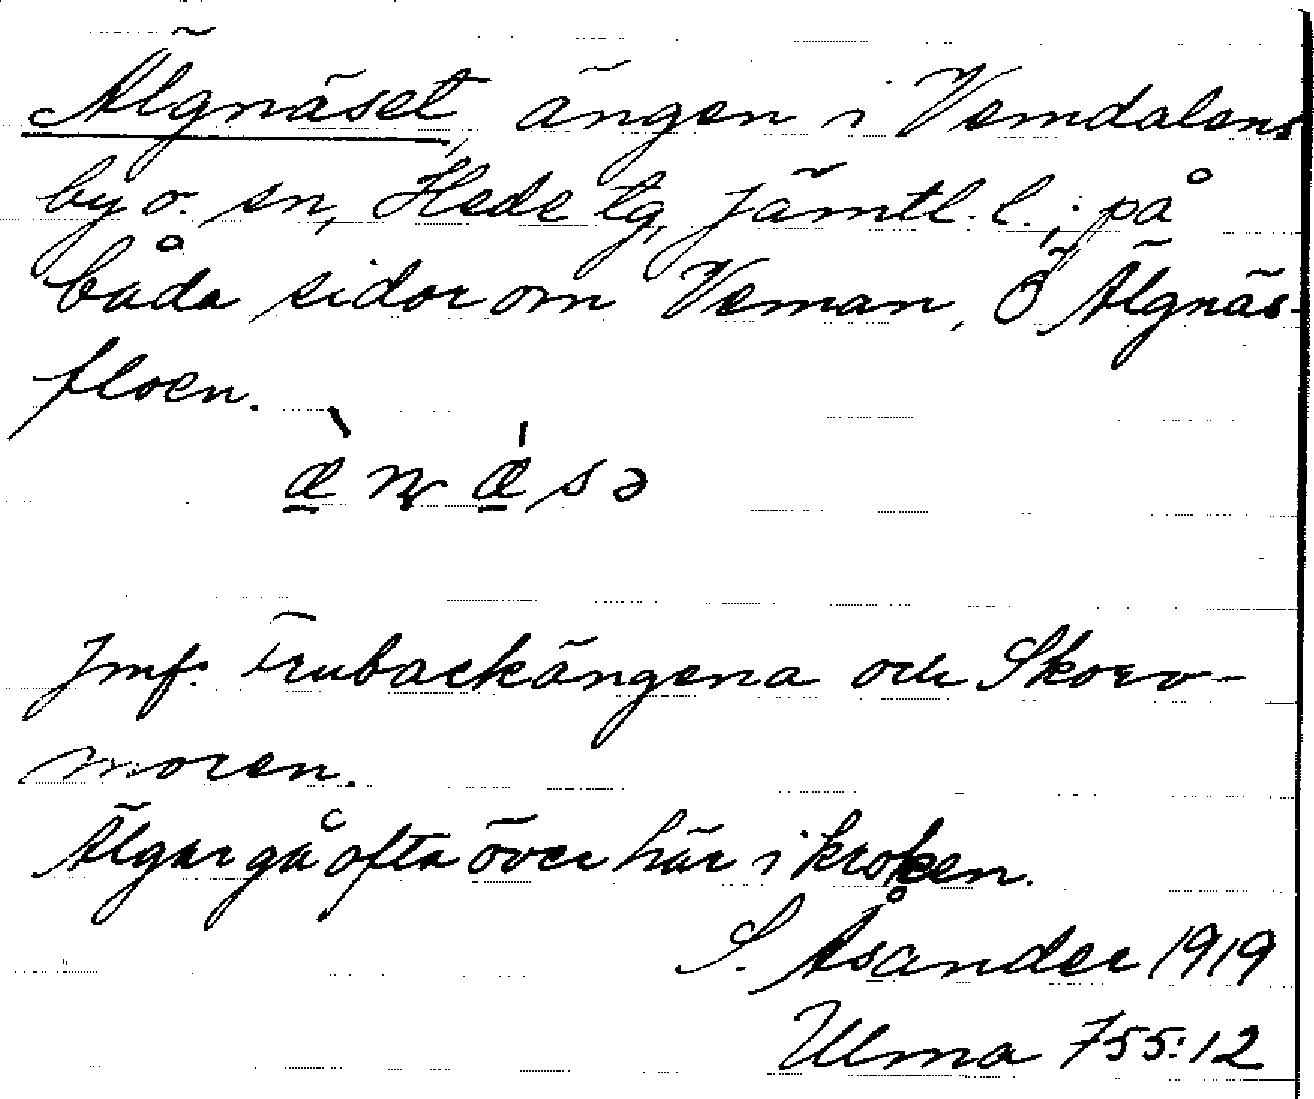 Älgnäset, ängen i Vemdalens
by o. sn, Hede tg, Jämtl. l.; på
båda sidor om Veman, Ö Älgnäs-
floen.
Jmf. Frubackängena och Skorv-
moren.
Älgar gå ofta över här i kroken.
S. Åsander 1919
Ulma 755:12